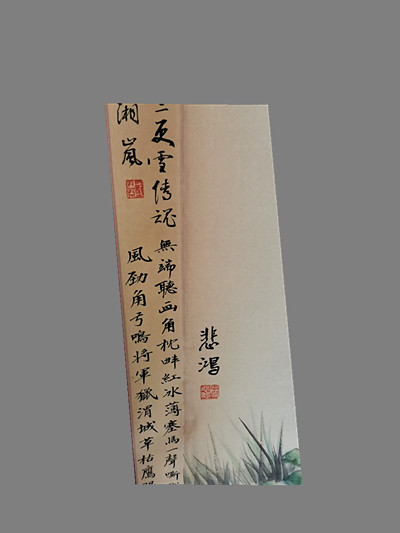 悲鴻
更雪傳
無端聽画角枕畔紅冰薄塞馬一聲嘶
湘嵐
風勁角弓鳴將軍獵渭城草枯鷹